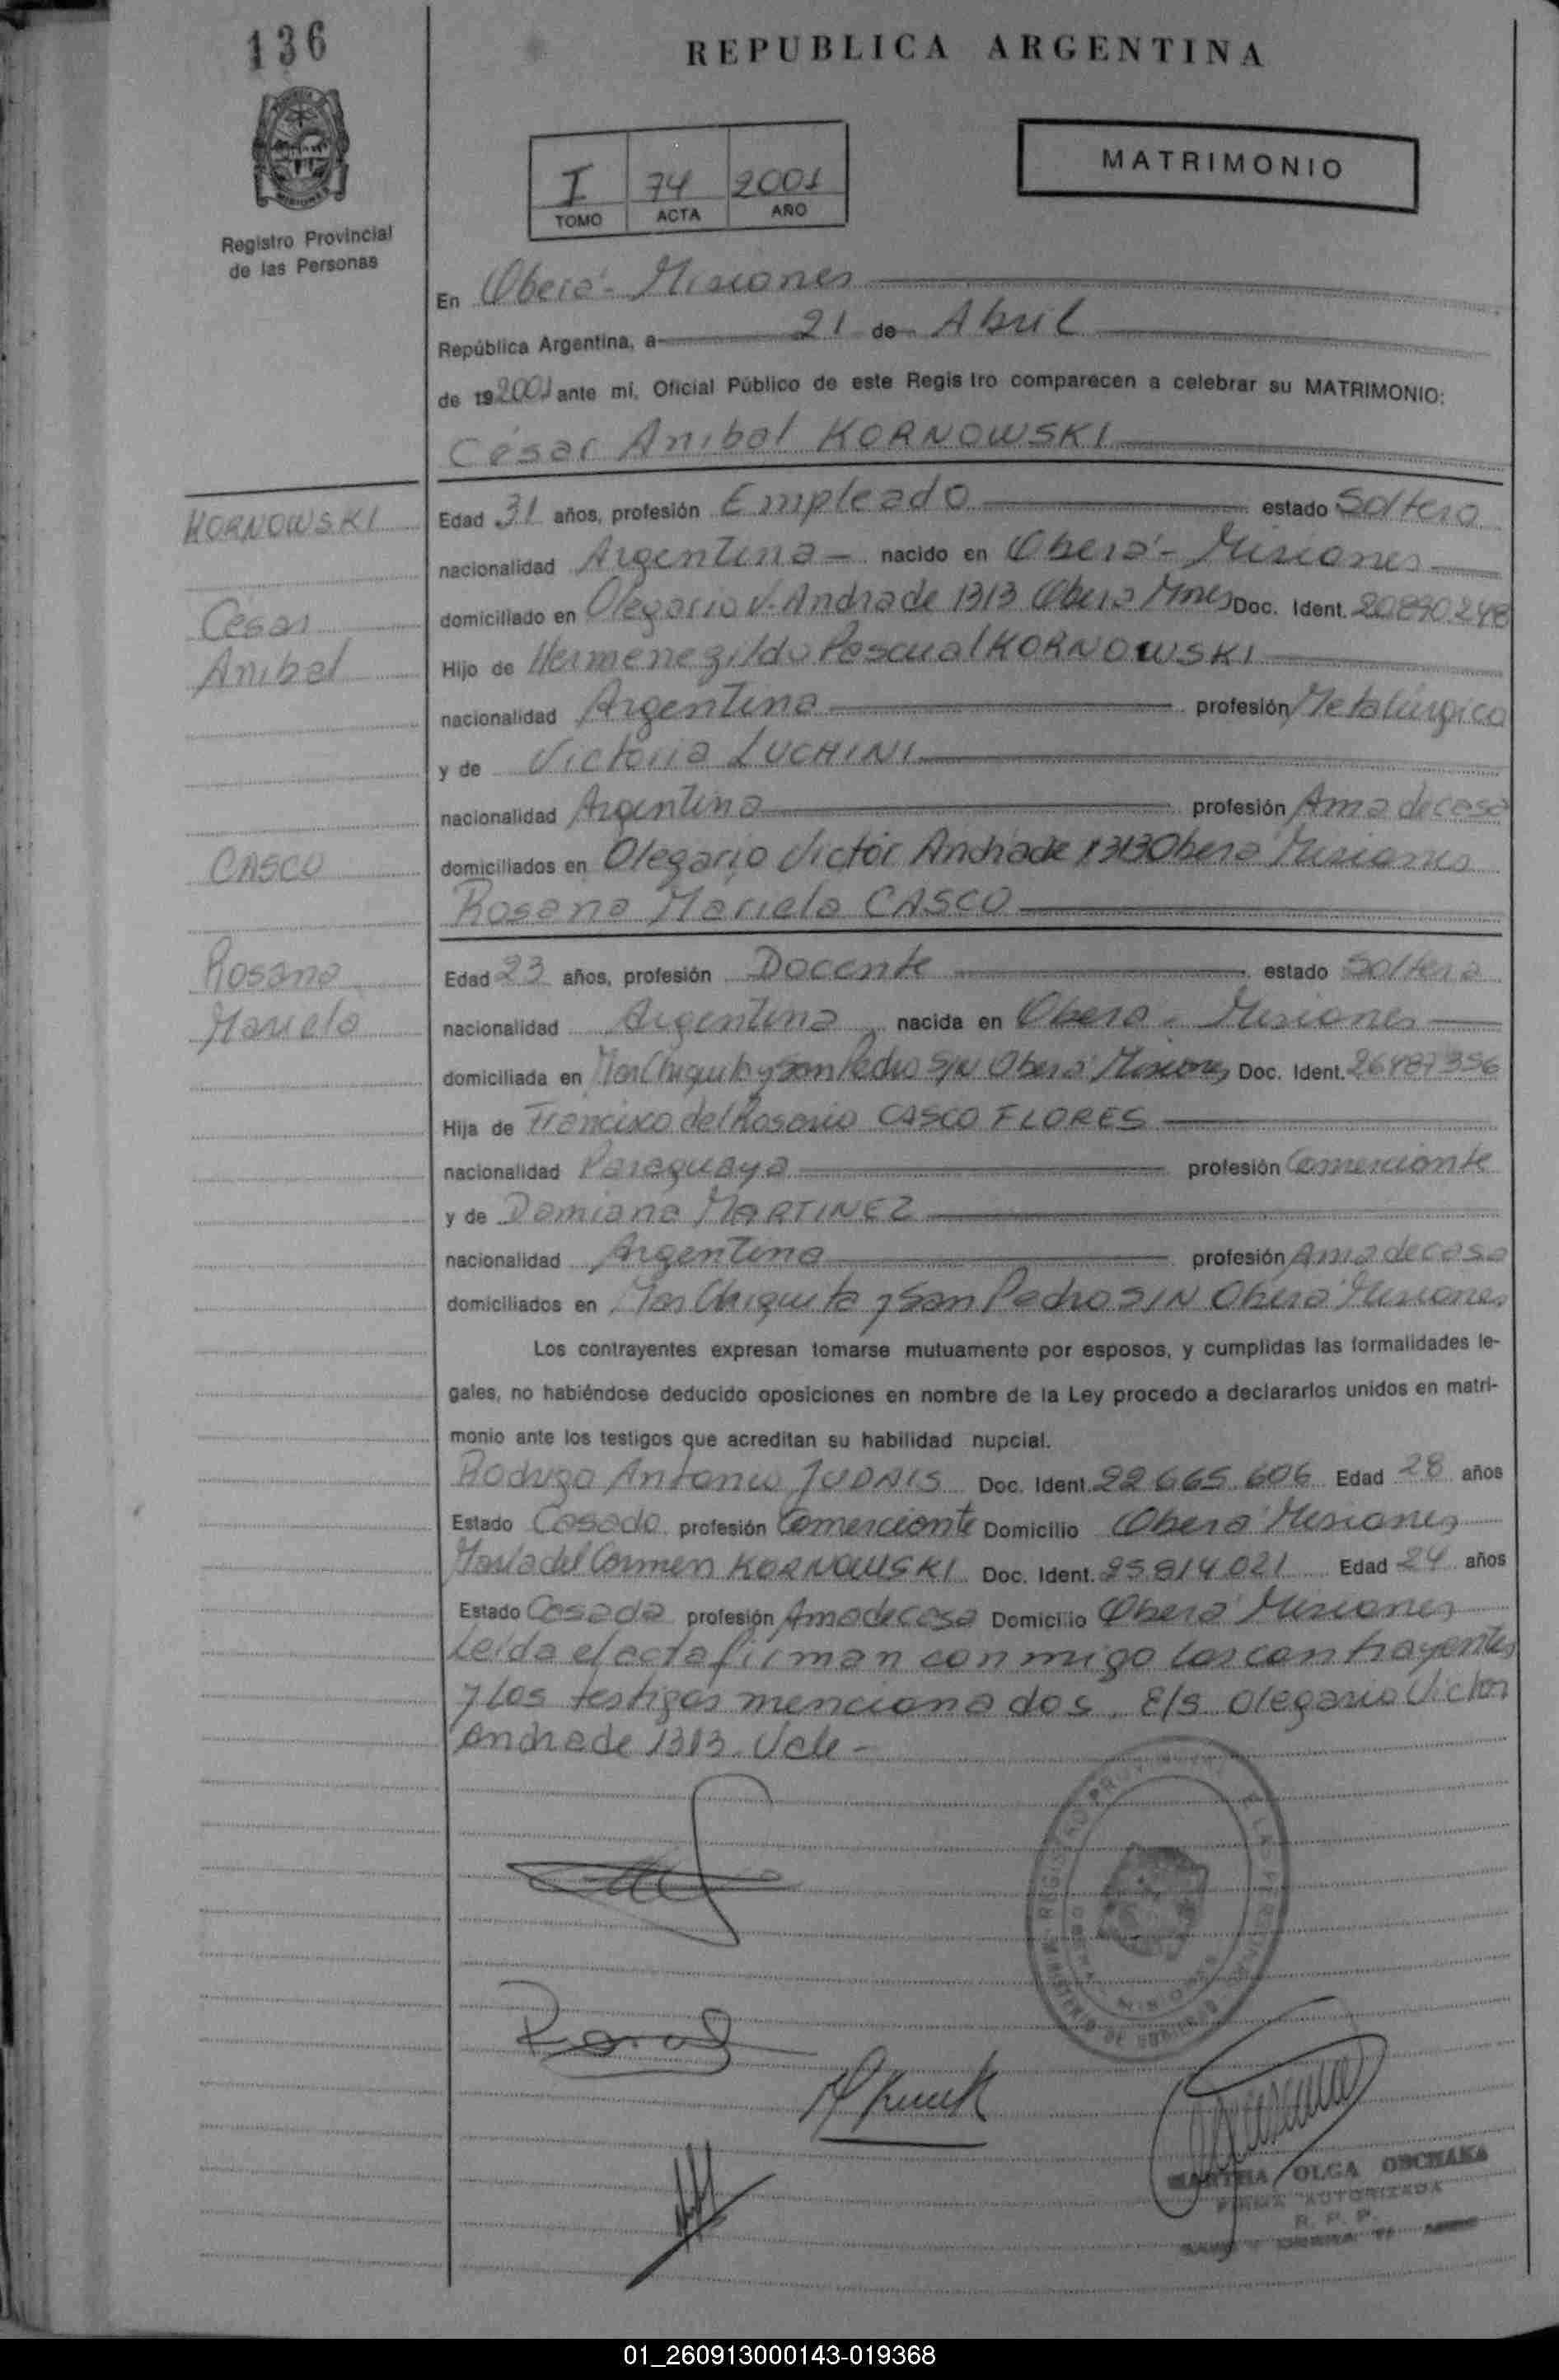 136
REPUBLICA ARGENTINA
MATRIMONIO
I 74 2001
TOMO ACTA AÑO
Registro Provincial
de las Personas
En Oberá - Misiones
República Argentina, a 21 de Abril
de 192001 ante mí, Oficial Público de este Regis tro comparecen a celebrar su MATRIMONIO:
César Anibal KORNOWSKI
KORNOWSKI
Edad 31 años, profesión Empleado estado Soltero
nacionalidad Argentina nacido en Oberá - Misiones
Cesar
domiciliado en Olegario V. Andrade 1313 Oberá Mnes Doc. Ident. 20.890.248
Anibal
Hijo de Hermenegildo Pascual KORNOWSKI
nacionalidad Argentina profesión Metalúrgico
y de Victoria LUCHINI
nacionalidad Argentina profesión Ama de casa
CASCO
domiciliados en Olegario Victor Andrade 1313 Obera Misiones
Rosana Mariela CASCO
Rosana
Edad 23 años, profesión Docente estado Soltera
Mariela
nacionalidad Argentina nacida en Oberá - Misiones
domiciliada en Mar Chiquita y San Pedro S/N Oberá Misiones Doc. Ident. 26487356
Hija de Francisco del Rosario CASCO FLORES
nacionalidad Paraguaya profesión Comerciante
y de Damiana MARTINEZ
nacionalidad Argentina profesión Ama de casa
domiciliados en Mar Chiquita y San Pedro S/N Oberá Misiones
Los contrayentes expresan tomarse mutuamente por esposos, y cumplidas las formalidades le-
gales, no habiéndose deducido oposiciones en nombre de la Ley procedo a declararlos unidos en matri-
monio ante los testigos que acreditan su habilidad nupcial.
Rodrigo Antonio JUDAIS Doc. Ident. 22.665.606 Edad 28 años
Estado Casado profesión Comerciante Domicilio Oberá Misiones
María del Carmen KORNOWSKI Doc. Ident. 25.814.021 Edad 24 años
Estado Casada profesión Ama de casa Domicilio Oberá Misiones
Leida el acta firman conmigo los contrayentes
y los testigos mencionados. E/s Olegario Victor
Andrade 1313. Vale -
MARTHA OLGA OBCHAKA
FIRMA AUTORIZADA
R. P. P.
01_260913000143-019368